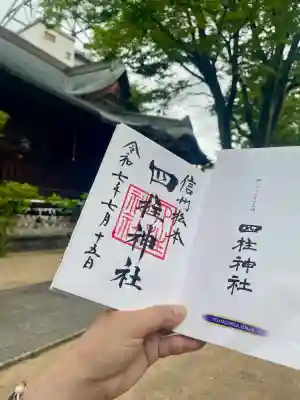 信州松本
四柱神社
令和七年七月十五日
四柱神社